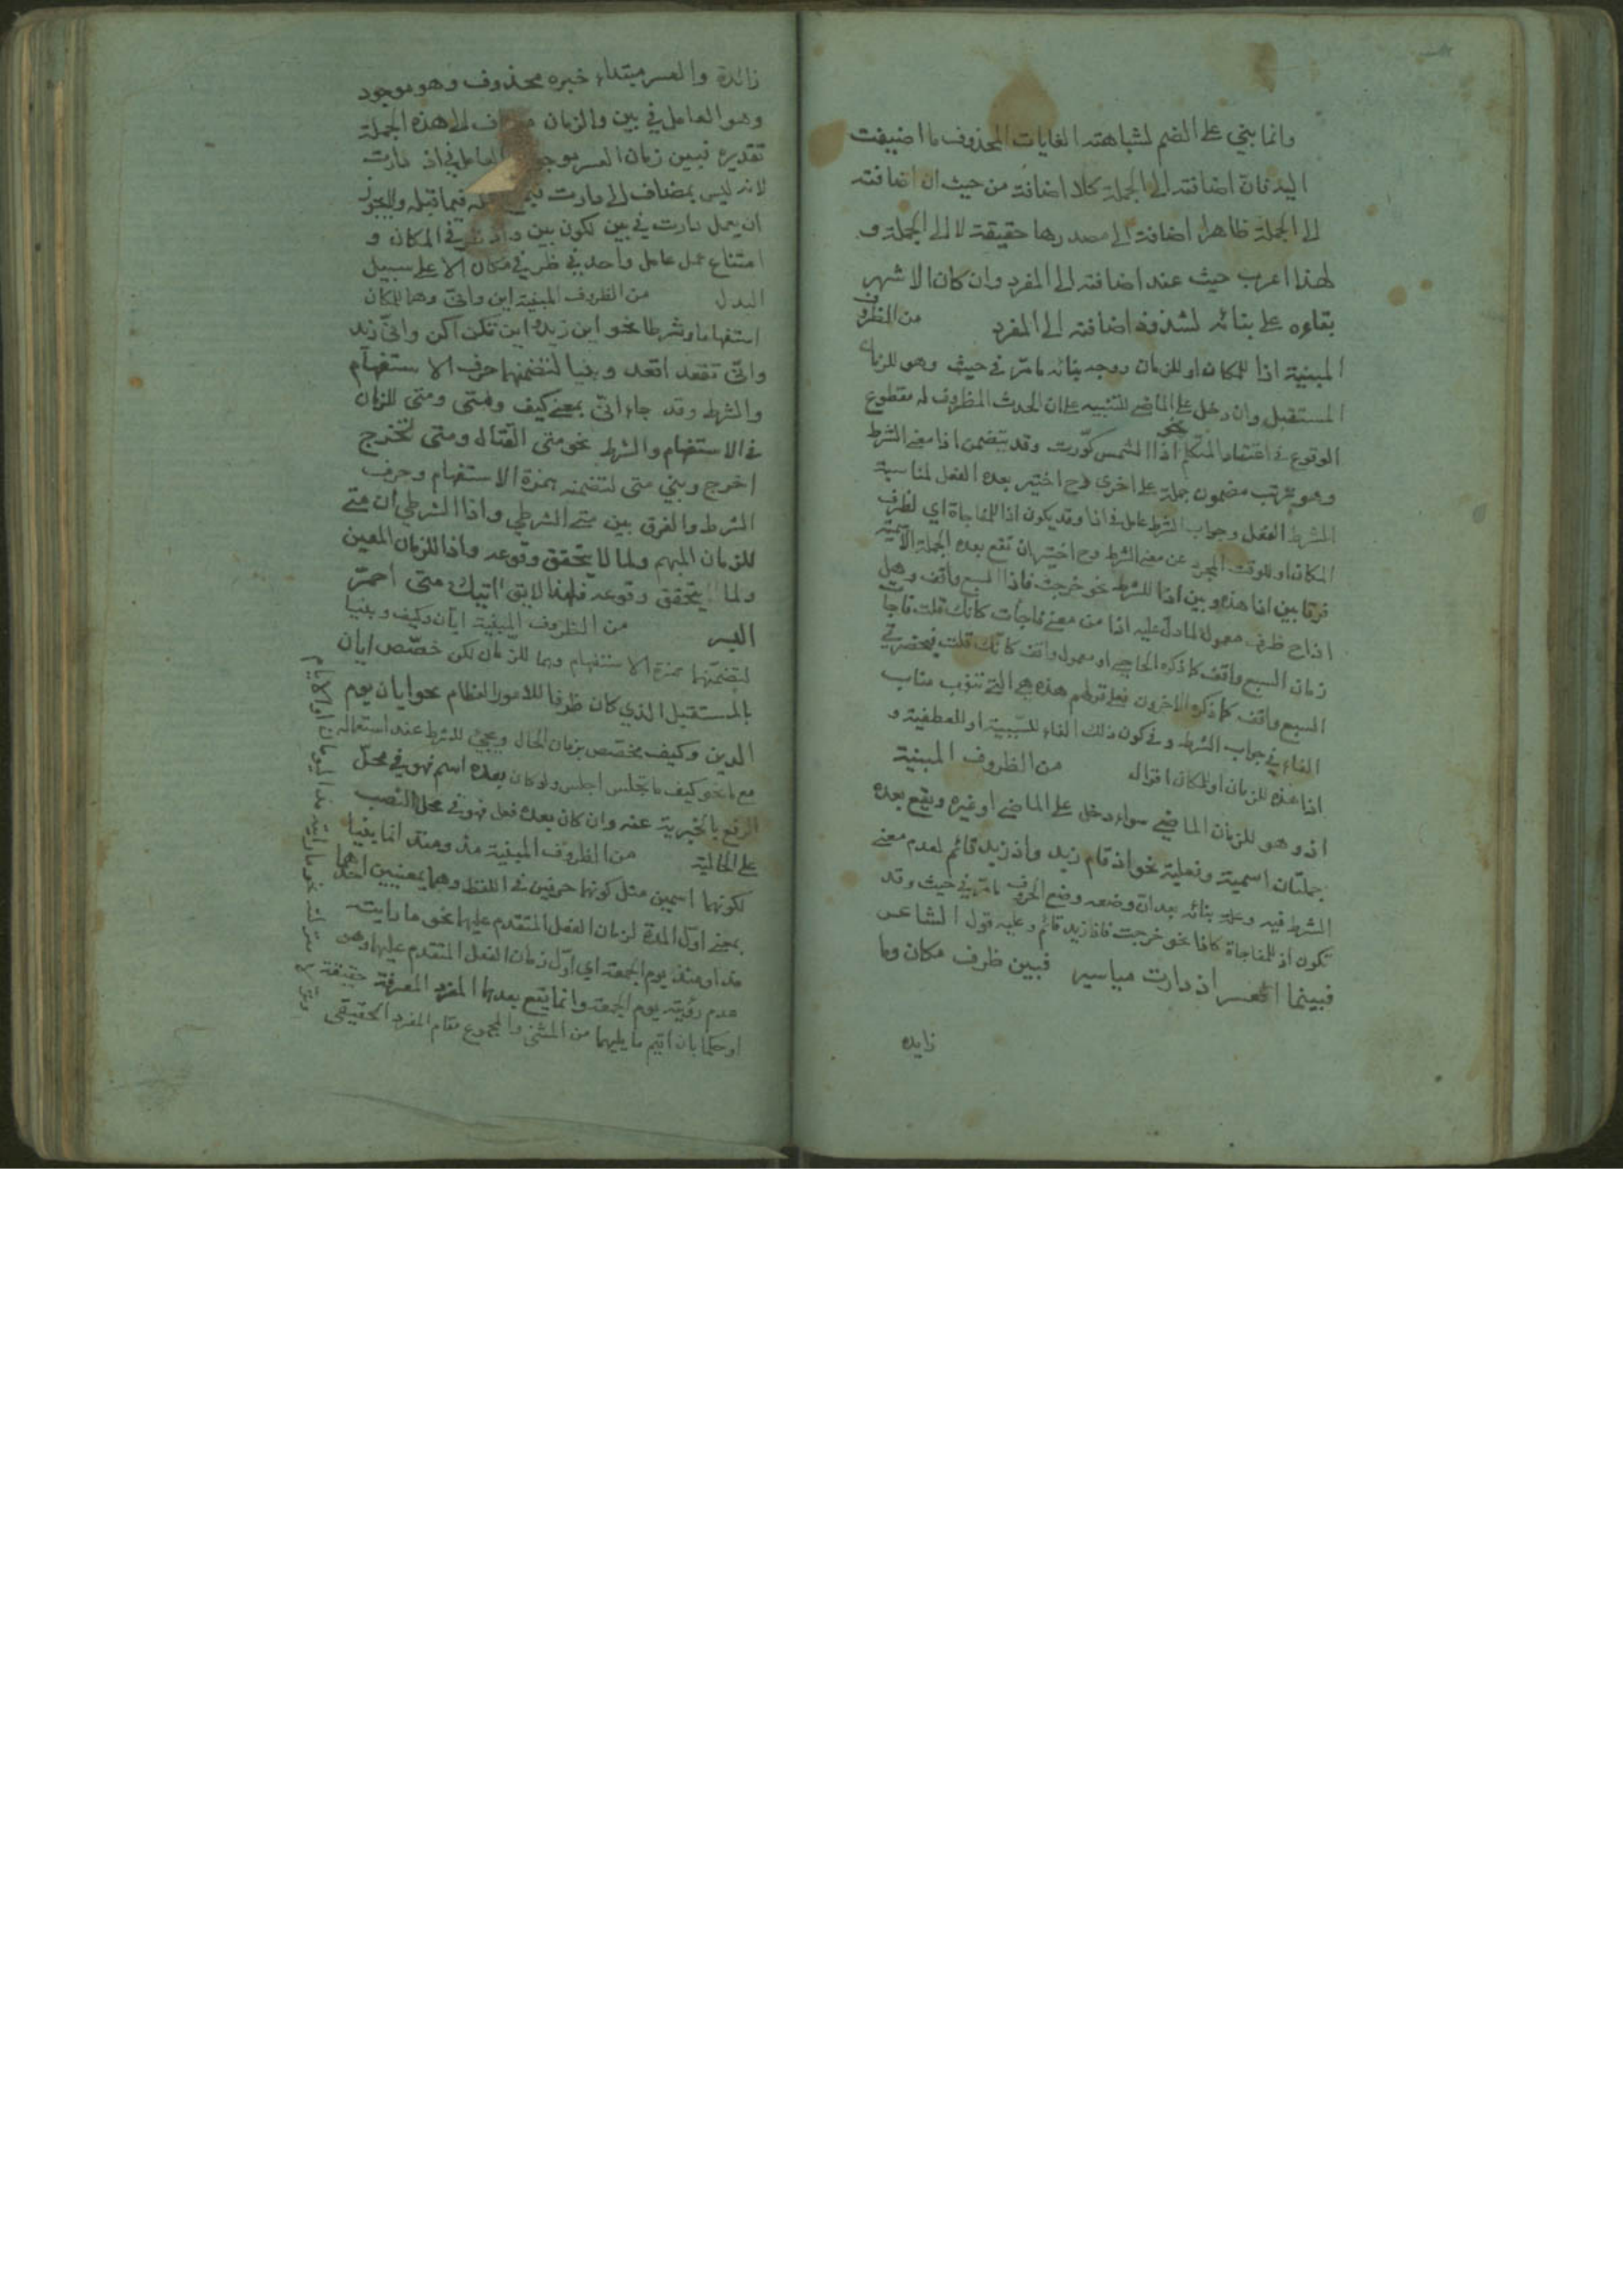 وانما بني على الضم لشباهته الغايات المحذوف ما اضيفت
اليه فان اضافته الى الجملة كلا اضافة من حيث ان اضافته
الى الجملة ظاهرا اضافة الى مصدرها حقيقة لا الى الجملة و
لهذا اعرب حيث عند اضافته الى المفرد وان كان الاشهر
بقاءه على بنائه لشذوذ اضافته الى المفرد من الظروف
المبنية اذا للمكان او للزمان ووجه بنائه ما مر في حيث وهو للزمان
المستقبل وان دخل على الماضي للتنبيه على ان الحدث المظروف له مقطوع
الوقوع في اعتقاد المتكلم نحو اذا الشمس كورت وقد يتضمن اذا معنى الشرط
وهو ترتب مضمون جملة على اخرى فح اختير بعده الفعل لمناسبة
الشرط الفعل وجواب الشرط عامل في اذا وقد يكون اذا للمفاجاة اي لظرف
المكان او للوقت المجرد عن معنى الشرط وح اختير ان تقع بعده الجملة الاسمية
فرقا بين اذا هذه وبين اذا للشرط نحو خرجت فاذا السبع واقف وهل
اذا ح ظرف معمولة لما دل عليه اذا من معنى فاجأت كانك قلت فاجأت
زمان السبع واقف كما ذكره الحاجبي او معمول واقف كانك قلت فبحضرتي
السبع واقف كما ذكره الاخرون فعلى قولهم هذه هي التي تنوب مناب
الفاء في جواب الشرط وفي كون ذلك الفاء للسببية او للعطفية و
اذا هذه للزمان او للمكان اقوال من الظروف المبنية
اذ وهو للزمان الماضي سواء دخل على الماضي او غيره ويقع بعده
جملتان اسمية وفعلية نحو اذ قام زيد واذ زيد قائم لعدم معنى
الشرط فيه وعلة بنائه بعد ان وضعه وضع الحروف ما مر في حيث وقد
تكون اذ للمفاجاة كاذا نحو خرجت فاذا زيد قائم وعليه قول الشاعر
فبينما العسر اذ دارت مياسير فبين ظرف مكان وما
زايده
زائدة والعسر مبتداء خبره محذوف وهو موجود
وهو العامل في بين والزمان الى هذه الجملة
تقديره فبين زمان العسر العامل في اذ دارت
لانه ليس بمضاف الى دارت فيما قبله ولا يجوز
ان يعمل دارت في بين لكون بين في المكان و
امتناع عمل عامل واحد في ظرفي مكان الا على سبيل
البدل من الظروف المبنية اين وانى وهما للمكان
استفهاما وشرطا نحو اين زيد واين تكن اكن وانى زيد
وانى تقعد اقعد وبنيا لتضمنهما حرف الاستفهام
والشرط وقد جاء انى بمعنى كيف ومتى ومتى للزمان
في الاستفهام والشرط نحو متى القتال ومتى تخرج
اخرج وبني متى لتضمنه همزة الاستفهام وحرف
الشرط والفرق بين متى الشرطي واذا الشرطي ان متى
للزمان المبهم ولما لا يتحقق وقوعه واذا للزمان المعين
ولما يتحقق وقوعه فلهذا لا يق اتيك متى احمر
البسر من الظروف المبنية ايان وكيف وبنيا
لتضمنهما همزة الاستفهام وهما للزمان لكن خصص ايان
بالمستقبل الذي كان ظرفا للامور العظام نحو ايان يوم
الدين وكيف مختص بزمان الحال ويجئ للشرط عند استعماله
مع ما نحو كيف ما تجلس اجلس ولو كان بعده اسم فهو في محل
الرفع بالخبرية عنه وان كان بعده فعل فهو في محل النصب
على الحالية من الظروف المبنية مذ ومنذ انما بنيا
لكونهما اسمين مثل كونهما حرفين في اللفظ وهما بمعنيين احدهما
بمعنى اول المدة لزمان الفعل المتقدم عليهما نحو ما رايته
مذ او منذ يوم الجمعة اي اول زمان الفعل المتقدم عليها وهو
عدم رؤيته يوم الجمعة وانما يقع بعدها المفرد المعرفة حقيقة
او حكما بان اقيم ما يليهما من المثنى والمجموع مقام المفرد الحقيقي
نحو ما رايته مذ اليومان او الايام